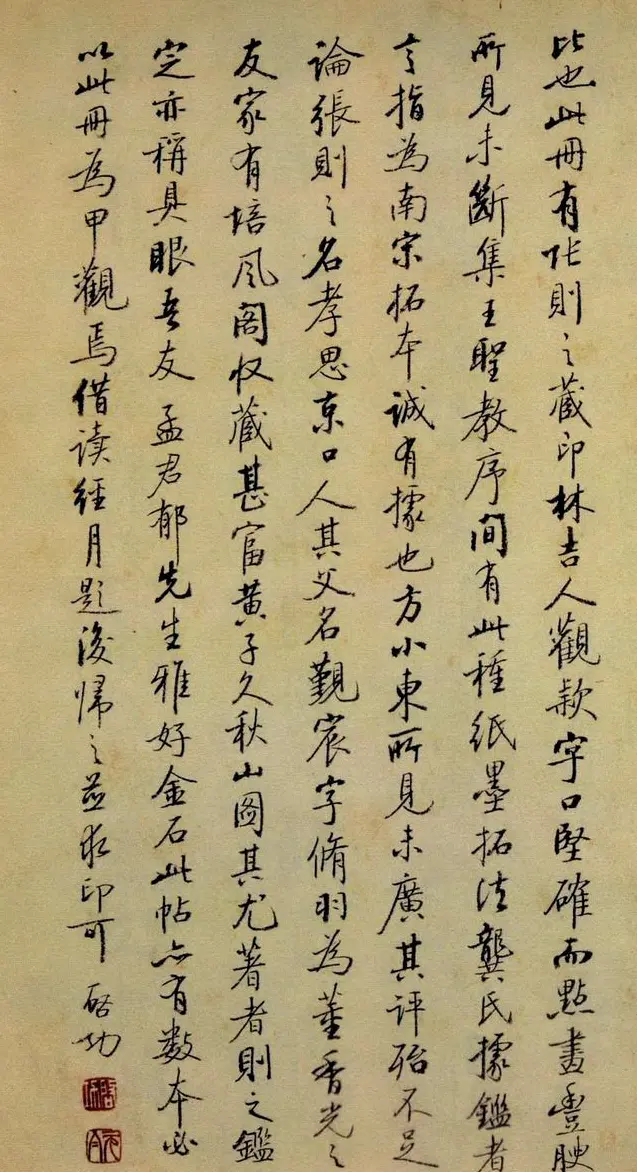 比也此冊有張則之藏印林吉人觀款字口堅確而點畫豐腴
所見未斷集王聖教序間有此種紙墨拓法龔氏據鑑者
言指為南宋拓本誠有據也方小東所見未廣其評殆不足
論張則之名孝思京口人其父名觀宸字脩羽為董香光之
友家有培風閣收藏甚富黃子久秋山圖其尤著者則之鑑
定亦稱具眼吾友孟君郁先生雅好金石此帖亦有數本必
以此冊為甲觀焉借读經月題後歸之並求印可 啓功